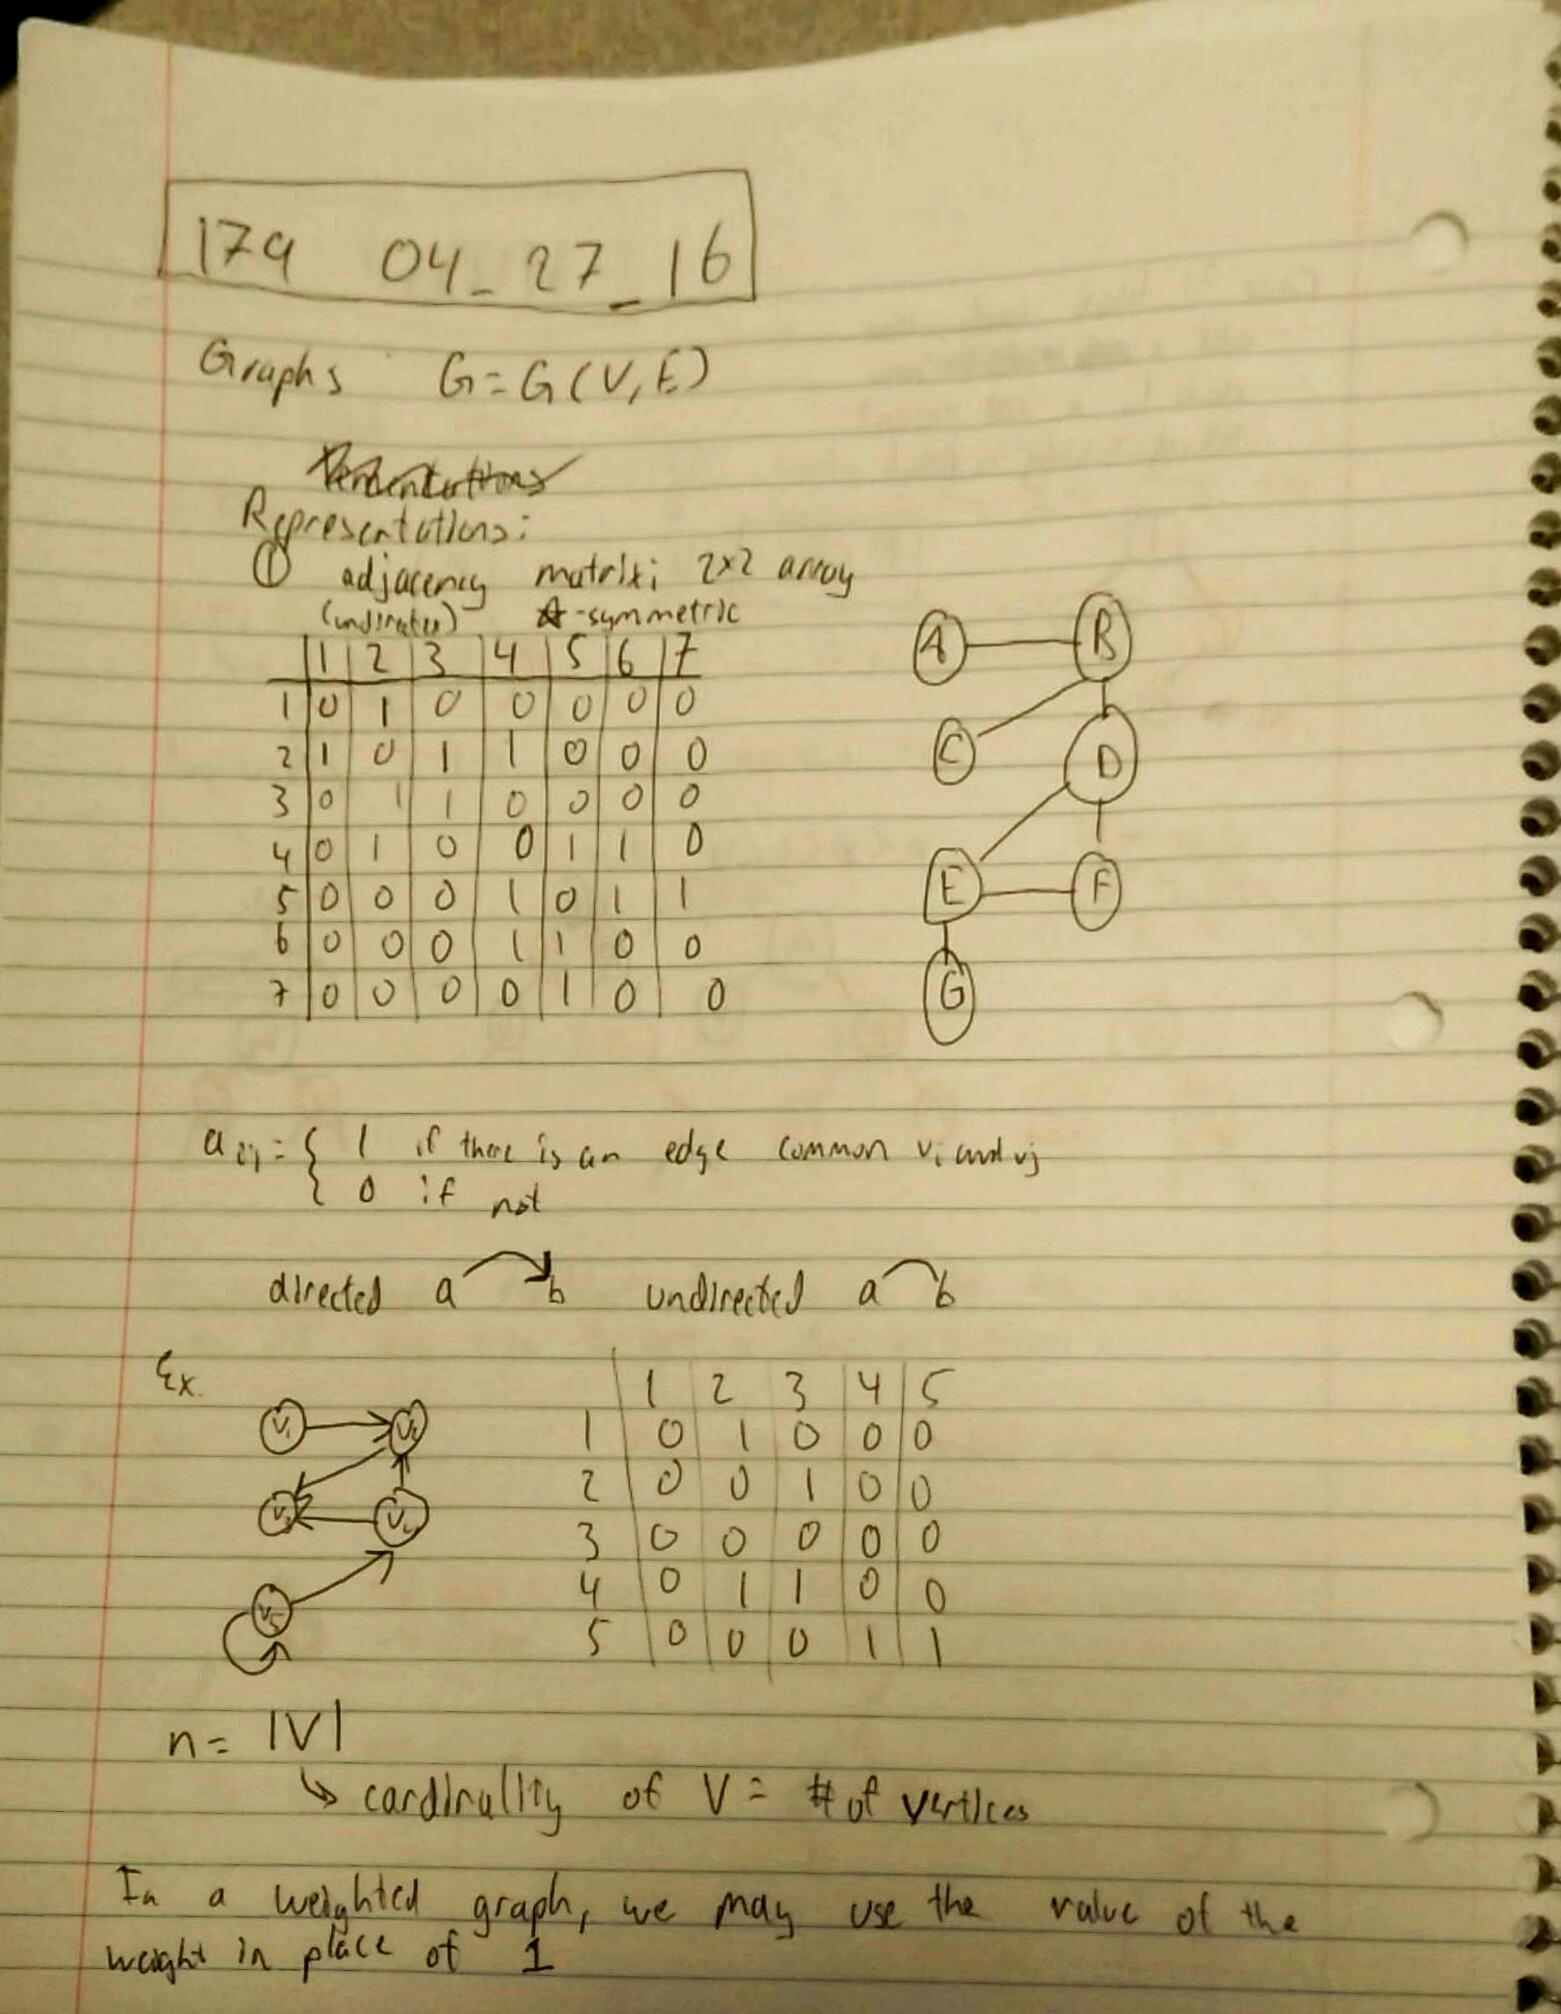 179 04_27_16
Graphs G=G(V,E)
Representations:
① adjacency matrix; 2x2 array
-symmetric
1 2 3 4 5 6 7
1 0 1 0 0 0 0 0
2 1 0 1 1 0 0 0
3 0 1 1 0 0 0 0
4 0 1 0 0 1 1 0
5 0 0 0 1 0 1 1
6 0 0 0 1 1 0 0
7 0 0 0 0 1 0 0
A B
C D
E F
G
aij = { 1 if there is an edge common vi and vj
{ 0 if not
directed a b undirected a b
Ex.
V1 V2
V3 V4
V5
1 2 3 4 5
1 0 1 0 0 0
2 0 0 1 0 0
3 0 0 0 0 0
4 0 1 1 0 0
5 0 0 0 1 1
n = |V|
↳ cardinality of V = # of vertices
In a weighted graph, we may use the value of the
weight in place of 1